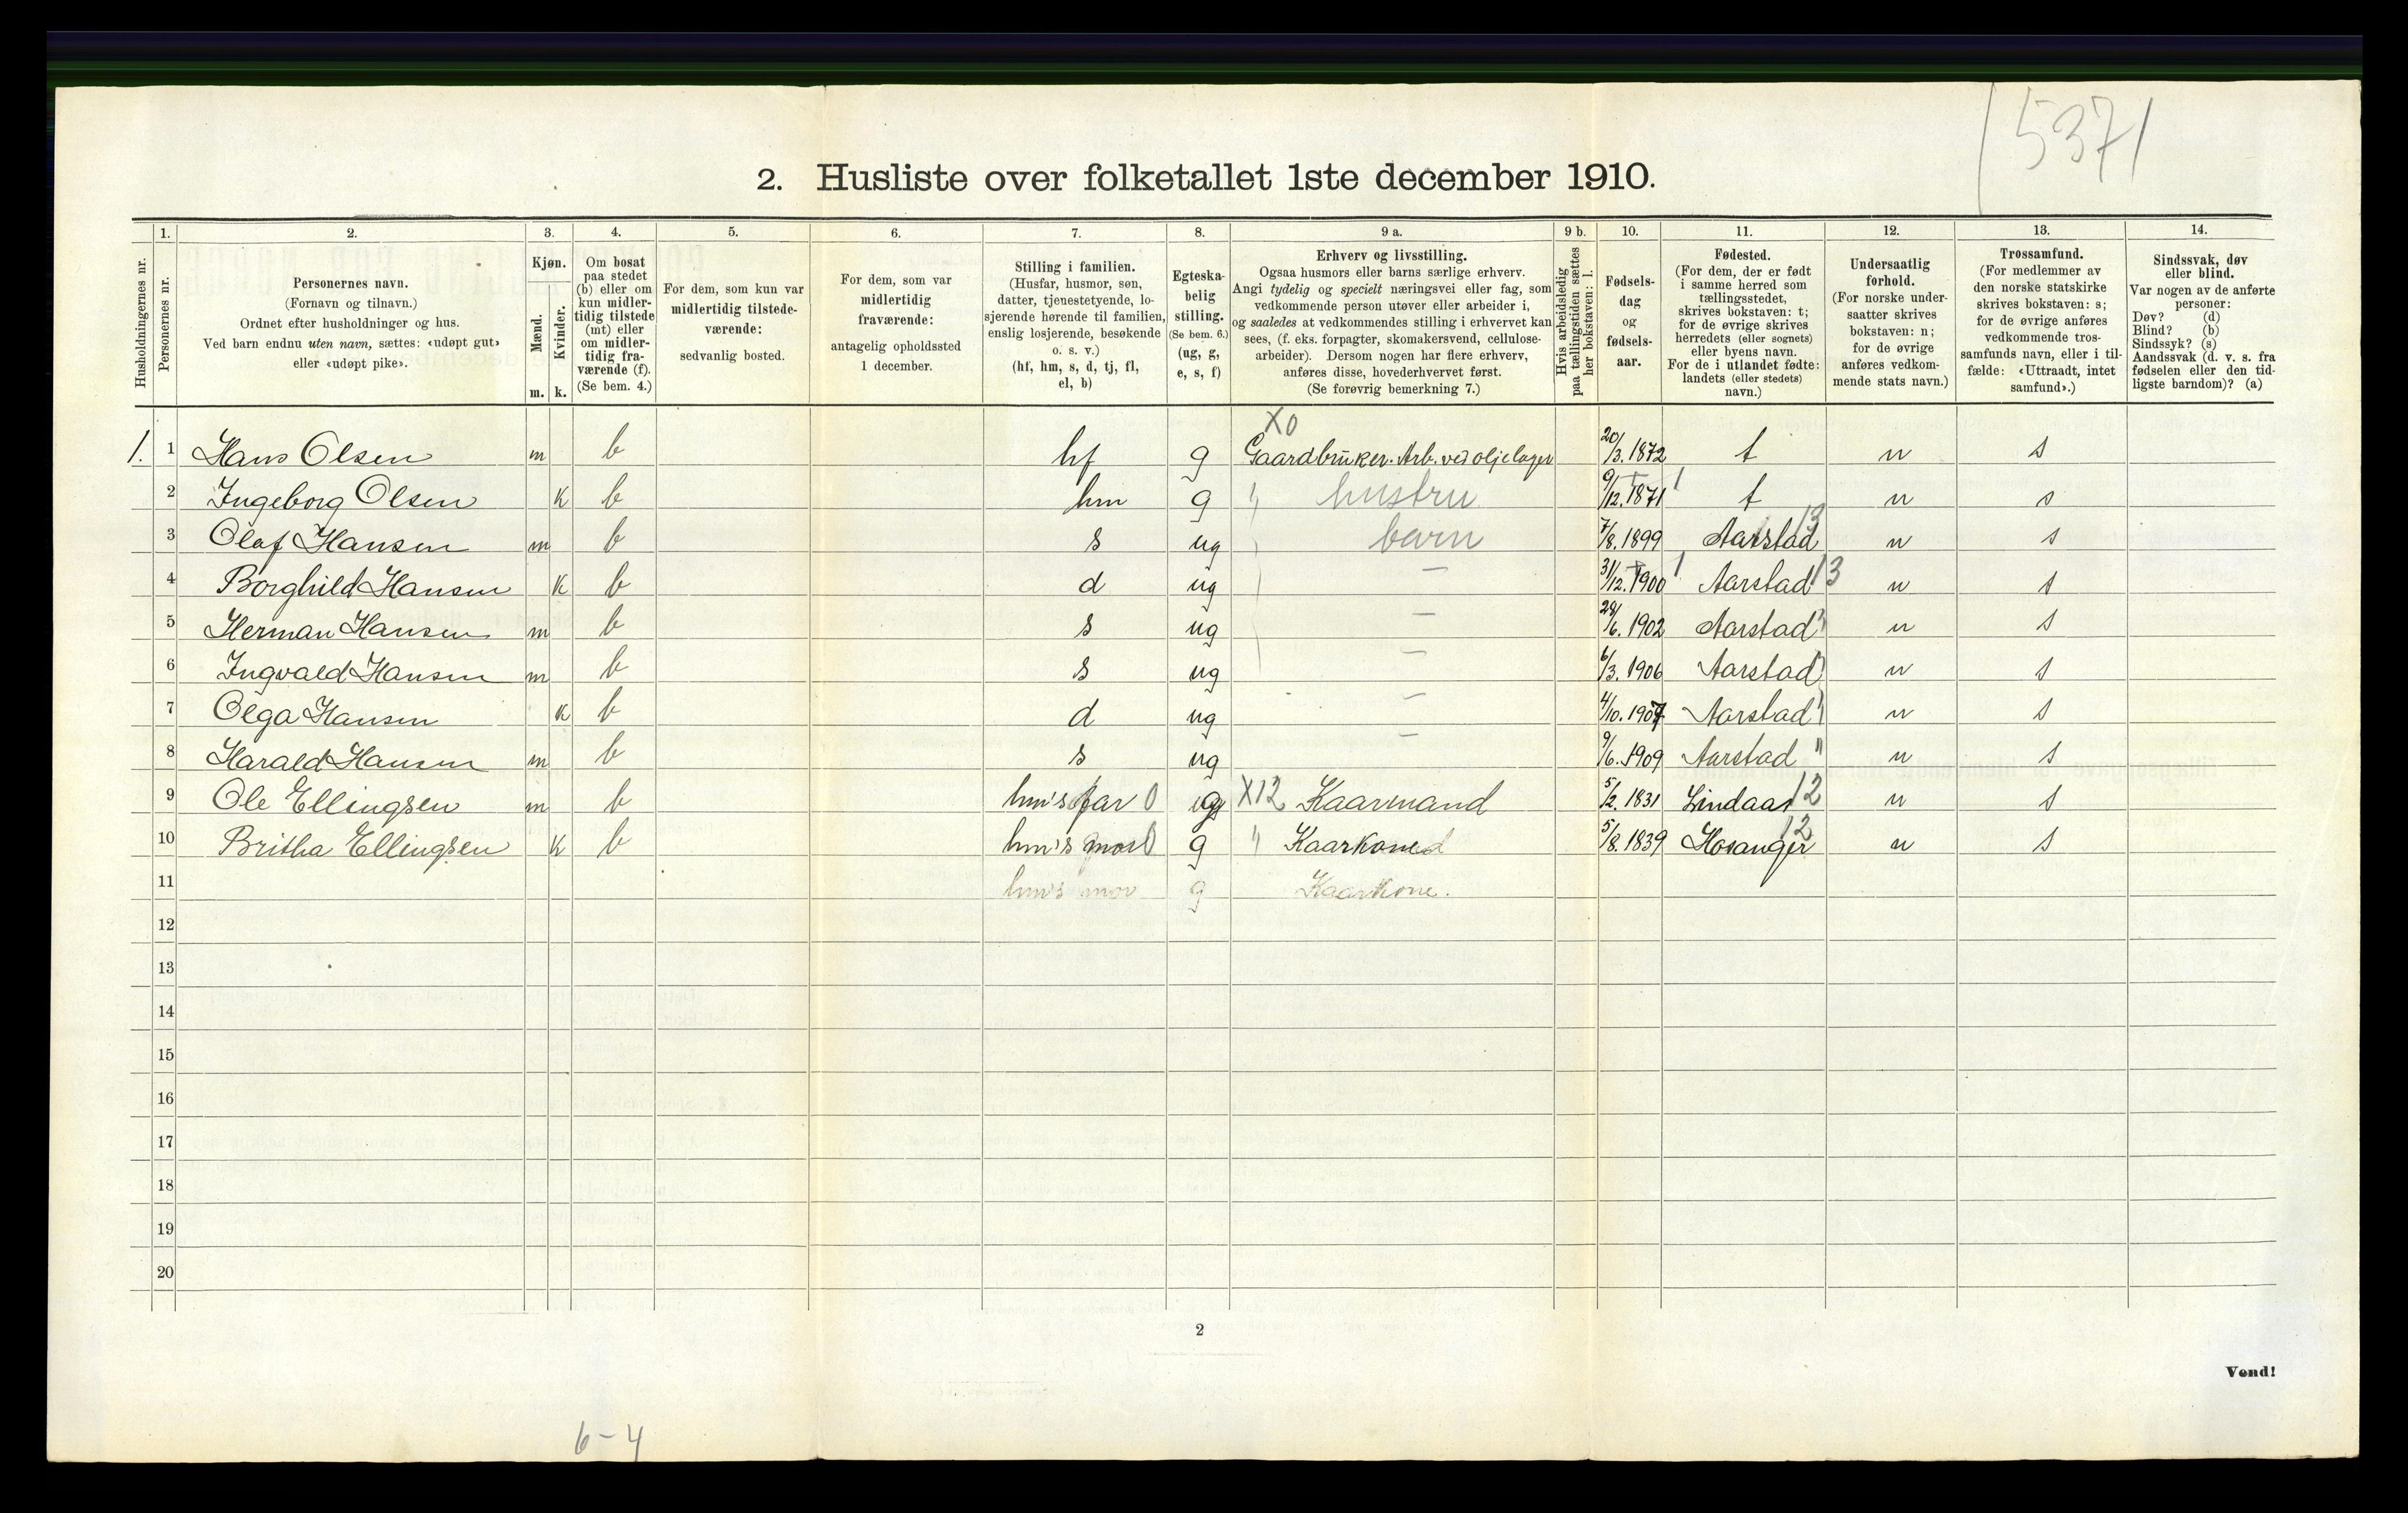 5371
2. Husliste over folketallet 1ste december 1910.
Husholdningernes nr.
1. Personernes nr.
2. Personernes navn. (Fornavn og tilnavn.) Ordnet efter husholdninger og hus. Ved barn endnu uten navn, sættes: «udøpt gut» eller «udøpt pike».
3. Kjøn. Mænd. m. Kvinder. k.
4. Om bosat paa stedet (b) eller om kun midlertidig tilstede (mt) eller om midlertidig fraværende (f). (Se bem. 4.)
5. For dem, som kun var midlertidig tilstedeværende: sedvanlig bosted.
6. For dem, som var midlertidig fraværende: antagelig opholdssted 1 december.
7. Stilling i familien. (Husfar, husmor, søn, datter, tjenestetyende, losjerende hørende til familien, enslig losjerende, besøkende o. s. v.) (hf, hm, s, d, tj, fl, el, b)
8. Egteskabelig stilling. (Se bem. 6.) (ug, g, e, s, f)
9 a. Erhverv og livsstilling. Ogsaa husmors eller barns særlige erhverv. Angi tydelig og specielt næringsvei eller fag, som vedkommende person utøver eller arbeider i, og saaledes at vedkommendes stilling i erhvervet kan sees, (f. eks. forpagter, skomakersvend, cellulosearbeider). Dersom nogen har flere erhverv, anføres disse, hovederhvervet først. (Se forøvrig bemerkning 7.)
9 b. Hvis arbeidsledig paa tællingstiden sættes her bokstaven: l.
10. Fødselsdag og fødselsaar.
11. Fødested. (For dem, der er født i samme herred som tællingsstedet, skrives bokstaven: t; for de øvrige skrives herredets (eller sognets) eller byens navn. For de i utlandet fødte: landets (eller stedets) navn.)
12. Undersaatlig forhold. (For norske undersaatter skrives bokstaven: n; for de øvrige anføres vedkommende stats navn.)
13. Trossamfund. (For medlemmer av den norske statskirke skrives bokstaven: s; for de øvrige anføres vedkommende trossamfunds navn, eller i tilfælde: «Uttraadt, intet samfund».)
14. Sindssvak, døv eller blind. Var nogen av de anførte personer: Døv? (d) Blind? (b) Sindssyk? (s) Aandssvak (d. v. s. fra fødselen eller den tidligste barndom)? (a)
X0
1. 1 Hans Olsen m b hf g Gaardbruker. Arb. ved oljelager 20/3. 1872 t n s
2 Ingeborg Olsen K b hm g " hustru 9/12. 1871 t n s
3 Olaf Hansen m b s ug barn 7/8. 1899 Aarstad 13 n s
4 Borghild Hansen K b d ug – 31/12. 1900 Aarstad 13 n s
5 Herman Hansen m b s ug – 28/6. 1902 Aarstad " n s
6 Ingvald Hansen m b s ug – 6/3. 1906 Aarstad " n s
7 Olga Hansen K b d ug – 4/10. 1907 Aarstad " n s
8 Harald Hansen m b s ug – 9/6. 1909 Aarstad " n s
9 Ole Ellingsen m b hm's far 0 g X12 Kaarmand 5/2. 1831 Lindaas 12 n s
10 Britha Ellingsen K b hm's mor 0 g " Kaarkone 5/8. 1839 Hosanger 12 n s
11 hm's mor g Kaarkone.
12
13
14
15
16
17
18
19
20
2
Vend!
6-4